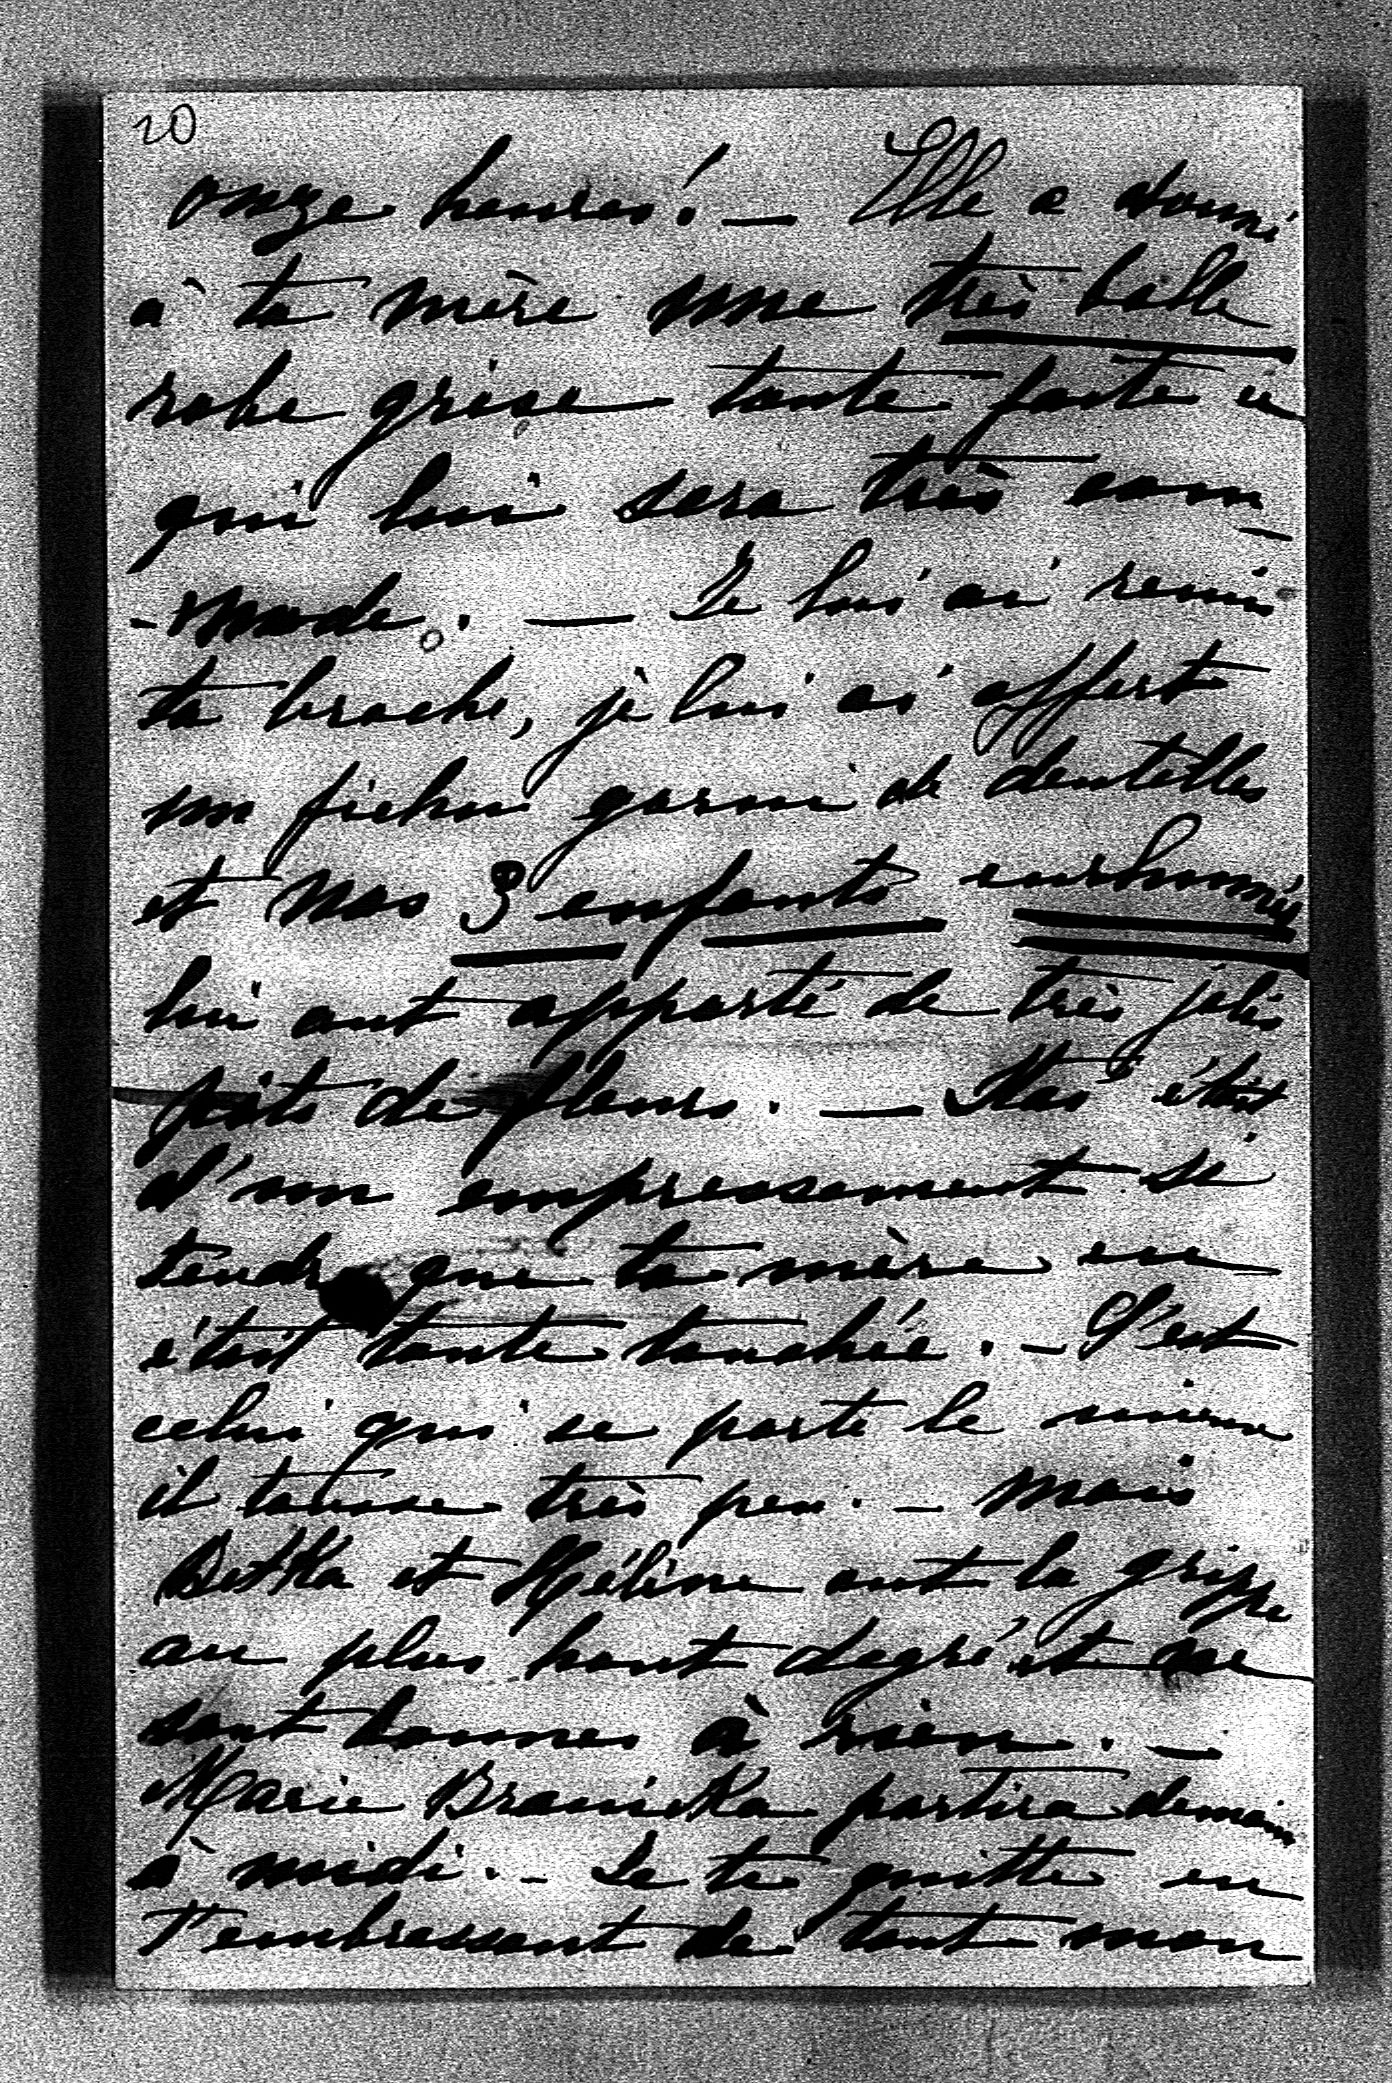 20
onze heures! — Elle a donné
à ta mère une très belle
robe grise toute faite et
qui lui sera très com_
-mode. — Je lui ai remis
ta broche, je lui ai offert
un fichu garni de dentelles
et nos 3 enfants enrhumés
lui ont apporté de très jolis
pots de fleurs. — Stas était
d'un empressement si
tendre que ta mère en
était toute touchée. — C'est
celui qui se porte le mieux
il tousse très peu. — Mais
Betka et Hélène ont la grippe
au plus haut degré et ne
sont bonnes à rien. —
Marie Branicka partira demain
à midi. — Je te quitte en
t'embrassant de tout mon